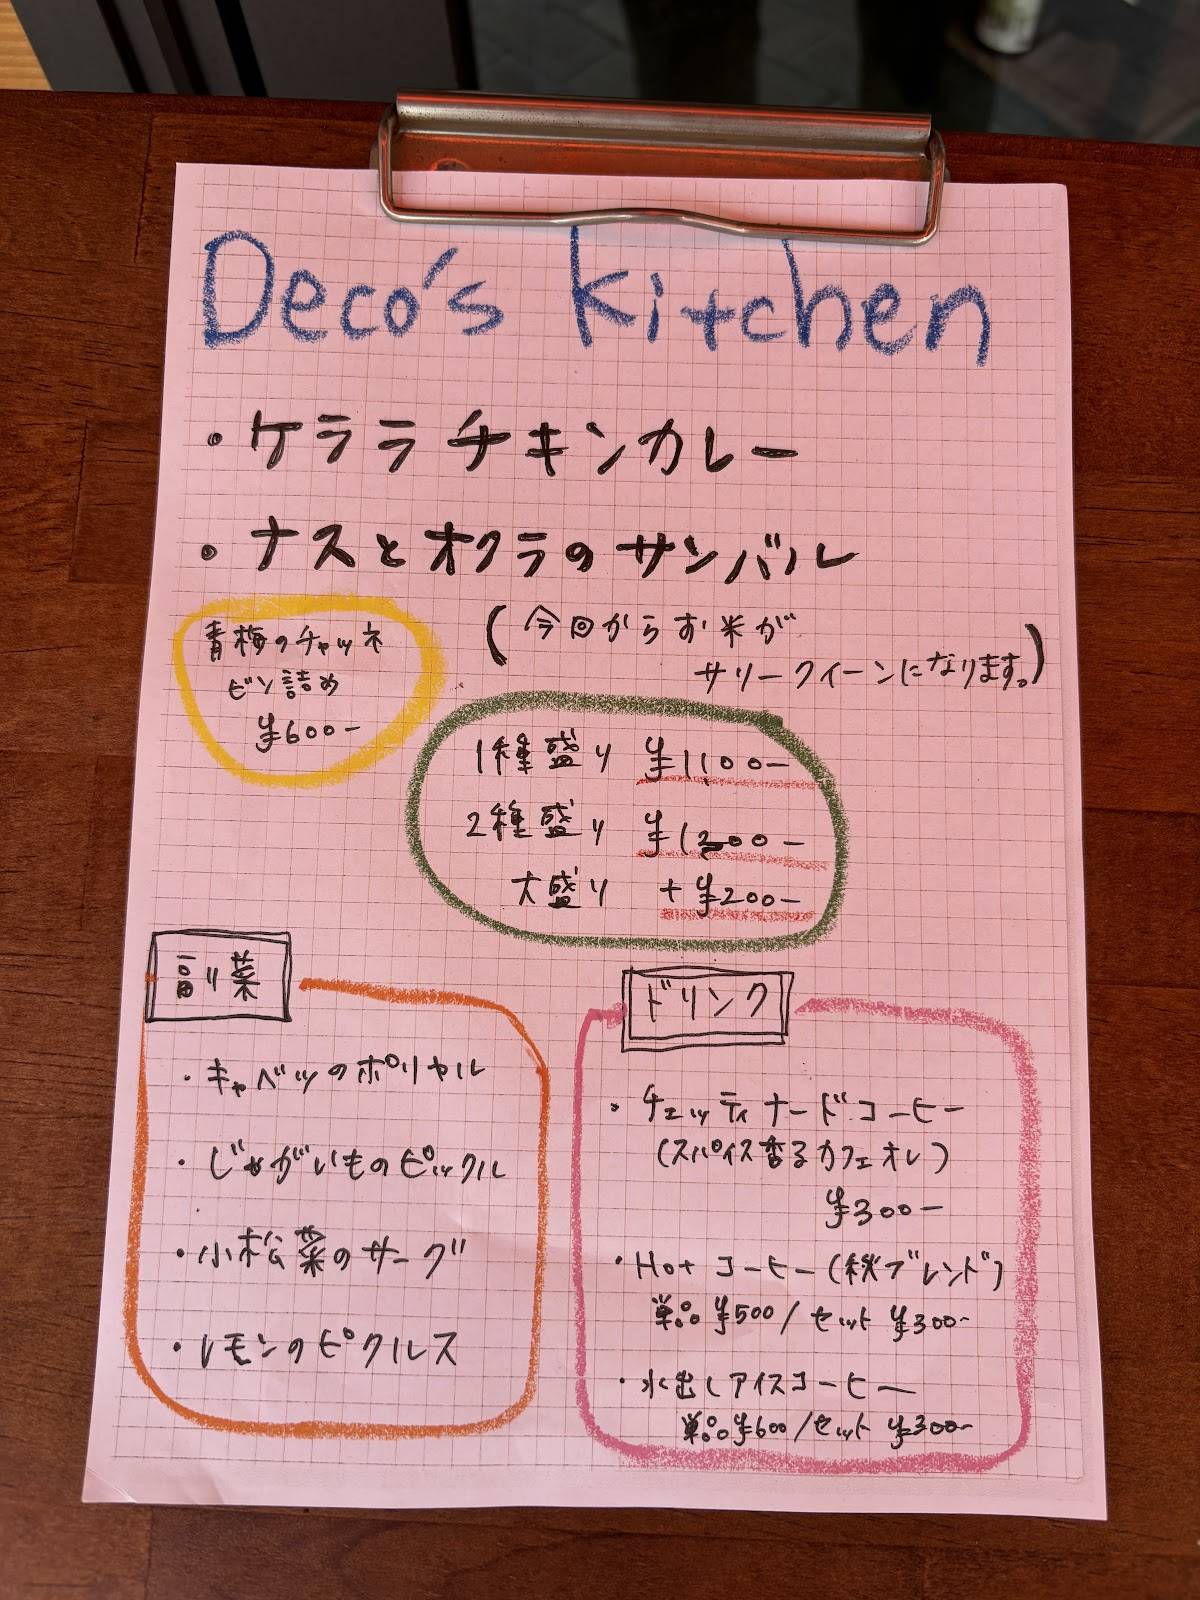 Deco's kitchen
・ケララチキンカレー
・ナスとオクラのサンバル
(今回からお米が
サリークイーンになります。)
青梅のチャツネ
ビン詰め
¥600-
1種盛り ¥1100-
2種盛り ¥1300-
大盛り +¥200-
副菜
・キャベツのポリヤル
・じゃがいものピックル
・小松菜のサーグ
・レモンのピクルス
ドリンク
・チェッティナードコーヒー
(スパイス香るカフェオレ)
¥300-
・Hot コーヒー(秋ブレンド)
単品 ¥500/セット ¥300-
・水出しアイスコーヒー
単品 ¥600/セット ¥300-